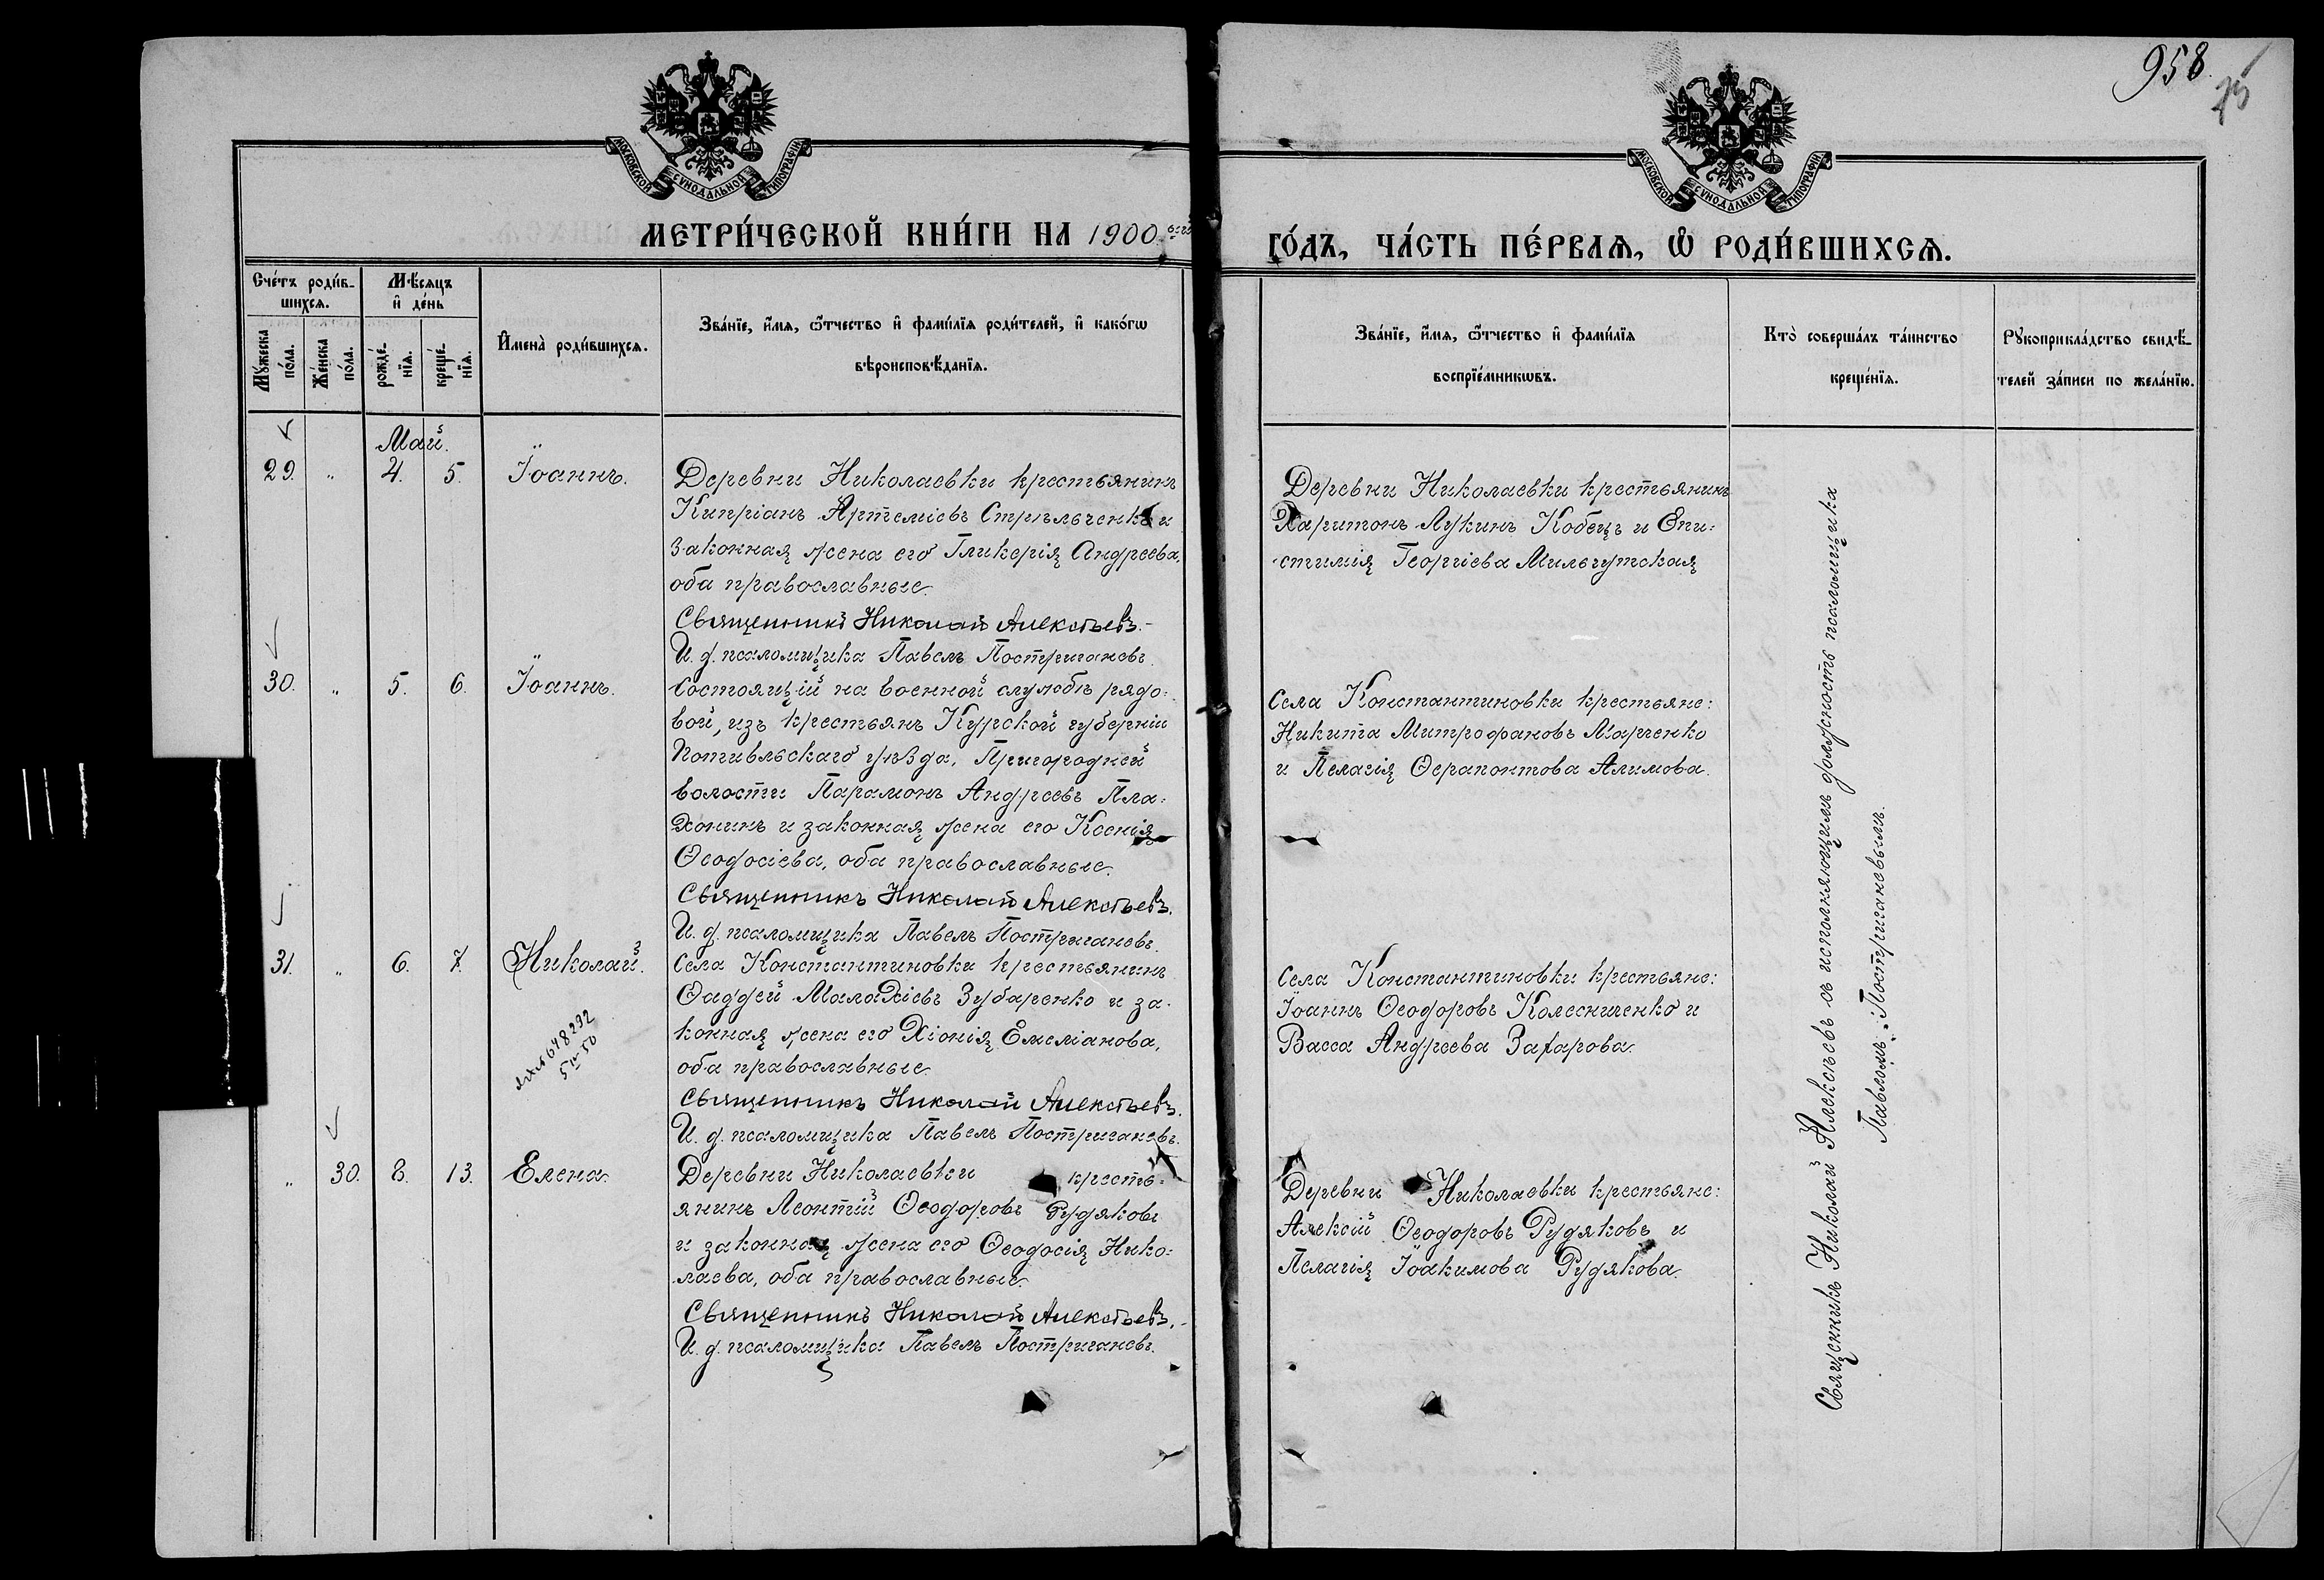 958
75
МОСКОВСКОЙ СУНОДАЛЬНОЙ ТИПОГРАФІИ
МОСКОВСКОЙ СУНОДАЛЬНОЙ ТИПОГРАФІИ
МЕТРИ́ЧЕСКОЙ КНИ́ГИ НА 1900
ГО́ДЪ, ЧА́СТЬ ПЕ́РВАѦ, Ѡ҆ РОДИ́ВШИХСѦ.
Сче́тъ роди́в-
шихсѧ.
Мѣ́сѧцъ
и҆ де́нь
Мꙋ́жеска
по́ла.
Же́нска
по́ла.
рожде́-
нїѧ.
креще́-
нїѧ.
И҆мена̀ роди́вшихсѧ.
Зва́нїе, и҆́мѧ, ѻ҆́тчество и҆ фами́лїѧ роди́телей, и҆ како́гѡ
вѣроисповѣ́данїѧ.
Зва́нїе, и҆́мѧ, ѻ҆́тчество и҆ фами́лїѧ
воспрїе́мникѡвъ.
Кто̀ соверша́лъ та́инство
креще́нїѧ.
Рꙋкоприкла́дство свидѣ́-
телей за́писи по жела́нїю.
Май.
29. " 4. 5. Іоаннъ.
Деревни Николаевки крестьянинъ
Кипріанъ Артеміевъ Стрѣльченко и
законная жена его Гликерія Андреева,
оба православные.
Священникъ Николай Алексѣевъ.
И. д. псаломщика Павелъ Постригановъ.
Деревни Николаевки крестьянинъ
Харитонъ Лукинъ Кобецъ и Епи-
стимія Георгіева Мильгутская
30. " 5. 6. Іоаннъ.
Состоящій на военной службѣ рядо-
вой, изъ крестьянъ Курской губерніи
Потивльскаго уѣзда, Пригородней
волости Парамонъ Андреевъ Пла-
хонинъ и законная жена его Ксенія
Ѳеодосіева, оба православные.
Священникъ Николай Алексѣевъ.
И. д. псаломщика Павелъ Постригановъ.
Села Константиновки крестьяне:
Никита Митрофановъ Марченко
и Пелагія Ѳерапонтова Алимова.
31. " 6. 7. Николай.
Села Константиновки крестьянинъ
Ѳаддей Малахіевъ Зубаренко и за-
конная жена его Хіонія Емеліанова,
оба православные.
Священникъ Николай Алексѣевъ.
И. д. псаломщика Павелъ Постригановъ.
648232
50
Села Константиновки крестьяне:
Іоаннъ Ѳеодоровъ Колесниченко и
Васса Андреева Захарова.
" 30. 8. 13. Елена.
Деревни Николаевки кресть-
янинъ Леонтій Ѳеодоровъ Рудяковъ
и законная жена его Ѳеодосія Нико-
лаева, оба православные.
Священникъ Николай Алексѣевъ.
И. д. псаломщика Павелъ Постригановъ.
Деревни Николаевки крестьяне:
Алексій Ѳеодоровъ Рудяковъ и
Пелагія Іоакимова Рудякова.
Священникъ Николай Алексѣевъ съ исполняющимъ должность псаломщика
Павломъ Постригановымъ.